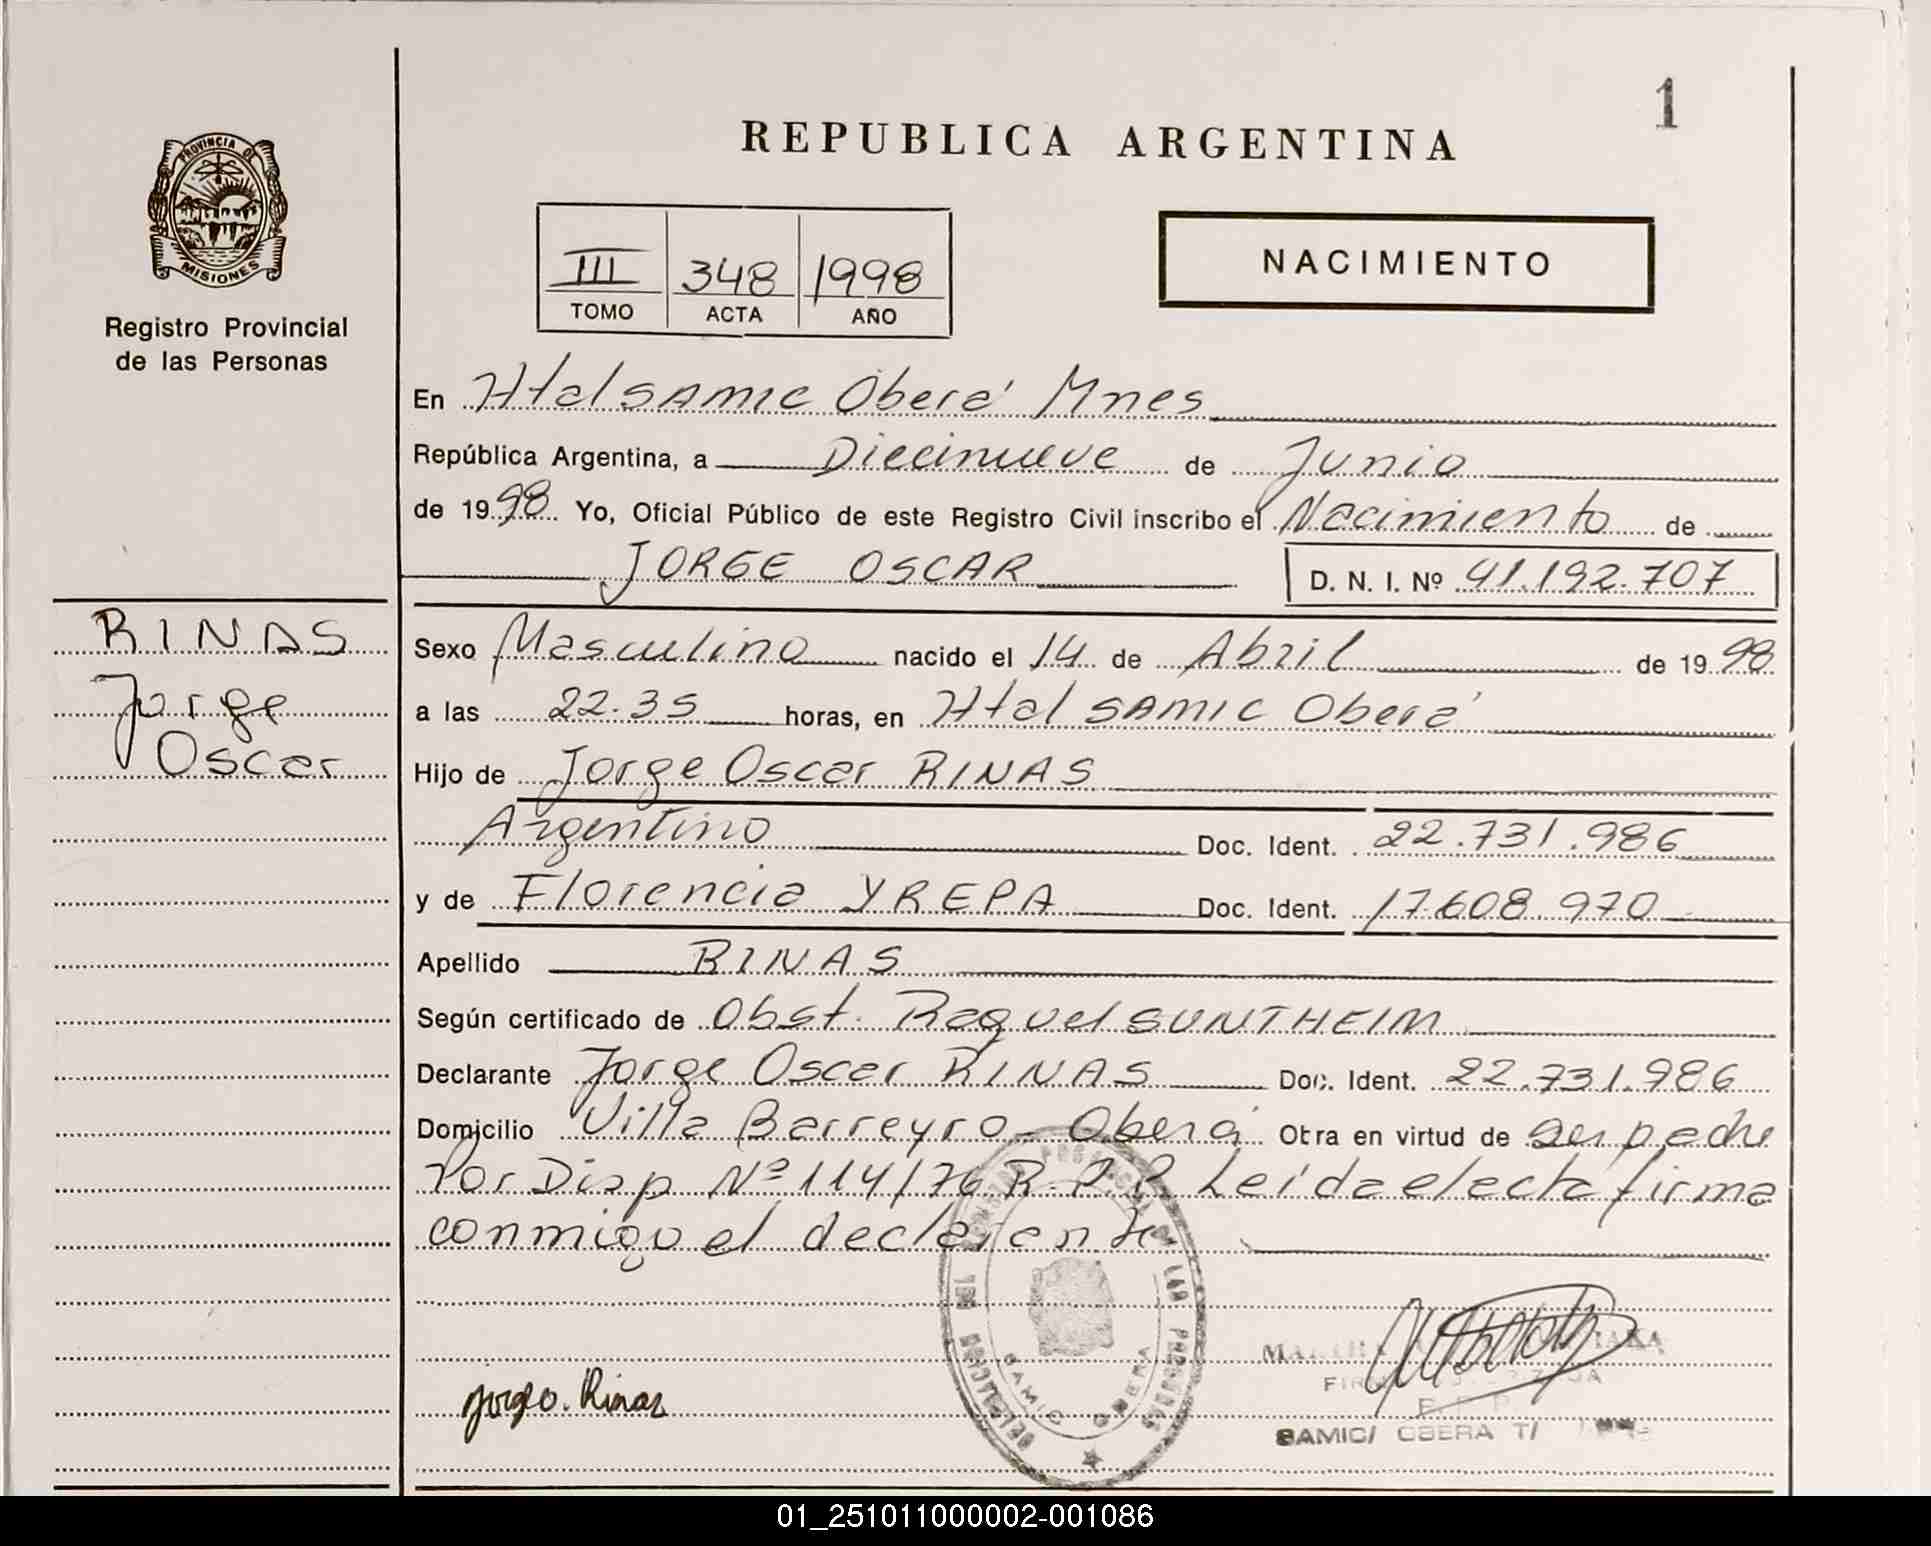 1
REPUBLICA ARGENTINA
PROVINCIA DE
MISIONES
Registro Provincial
de las Personas
III 348 1998
TOMO ACTA AÑO
NACIMIENTO
En Htal SAMIC Oberá Mnes
República Argentina, a Diecinueve de Junio
de 1998 Yo, Oficial Público de este Registro Civil inscribo el Nacimiento de
JORGE OSCAR D. N. I. Nº 41.192.707
RINAS
Jorge
Oscar
Sexo Masculino nacido el 14 de Abril de 1998
a las 22.35 horas, en Htal SAMIC Oberá
Hijo de Jorge Oscar RINAS
Argentino Doc. Ident. 22.731.986
y de Florencia YREPA Doc. Ident. 17.608.970
Apellido RINAS
Según certificado de Obst. Raquel SUNTHEIM
Declarante Jorge Oscar RINAS Doc. Ident. 22.731.986
Domicilio Villa Barreyro - Oberá Obra en virtud de ser padre
Por Disp Nº 114/76 R.P.P. Leída el acta firma
conmigo el declarante
DELEGACION DEL REGISTRO PROVINCIAL DE LAS PERSONAS
SAMIC OBERA
Jorge O. Rinas
SAMIC/ OBERA T/
01_251011000002-001086